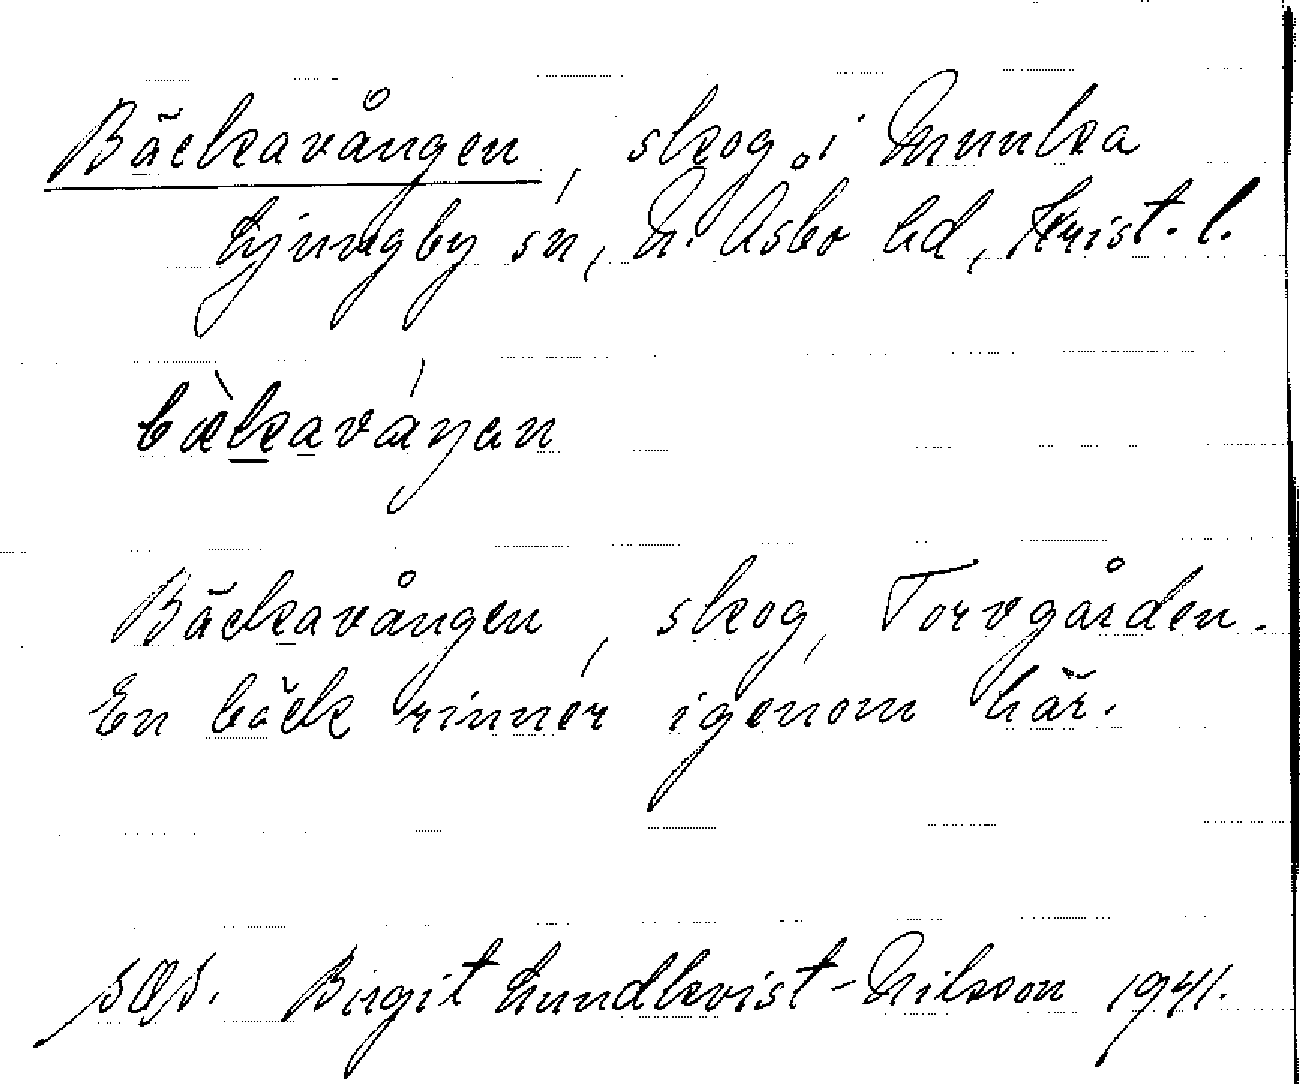 Bäckavången, skog i Munka
Ljungby sn, N. Åsbo hd, Krist. l.
bæ̀kaváŋan
Bäckavången, skog, Torvgården.
En bäck rinner igenom här.
Birgit Lundkvist-Nilsson 1941.